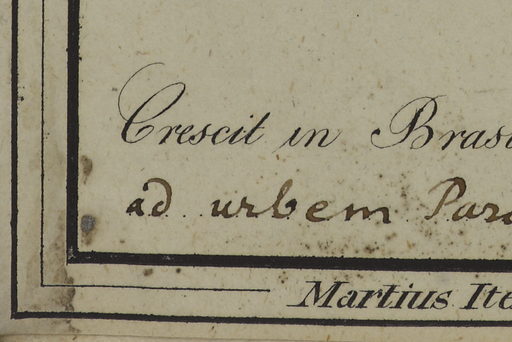 Crescit in Bras
ad urbem Par
Martius Ite